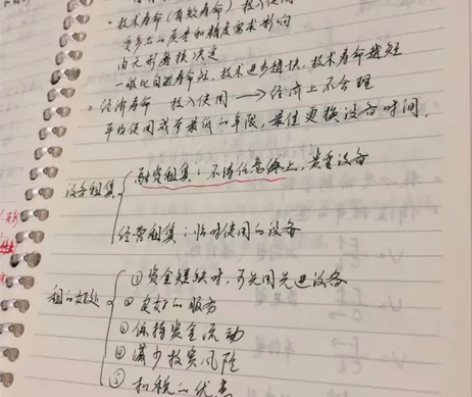 ·技术寿命(有效寿命) 投入使用
受产品的质量和精度要求影响
由无形磨损决定
一般比自然寿命短,技术进步越快,技术寿命越短
·经济寿命 投入使用→经济上不合理
平均使用成本最低的年限,最佳更换设备时间.
设备租赁
融资租赁:不得任意终止,贵重设备
经营租赁:临时使用的设备
租的好处
①资金短缺时,可先用先进设备
②良好的服务
③保持资金流动
④减少投资风险
⑤税的优惠